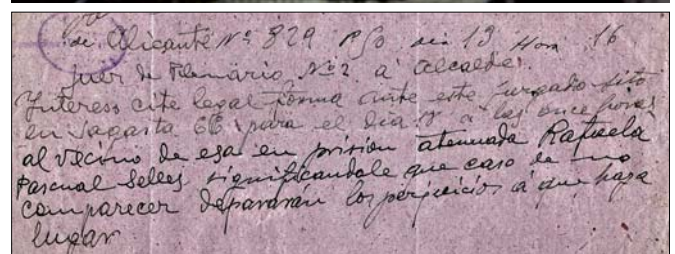 de Alicante Nº 829 PSo dia 13 Hora 16
Juez de Plenario Nº 2 á Alcalde:
Intereso cite legal forma ante este Juzgado sito
en Sagasta 66 para el dia a las once horas
al vecino de esa en prision atenuada Rafaela
Pascual Selles significandole que caso de no
comparecer depararán los perjuicios á que haya
lugar